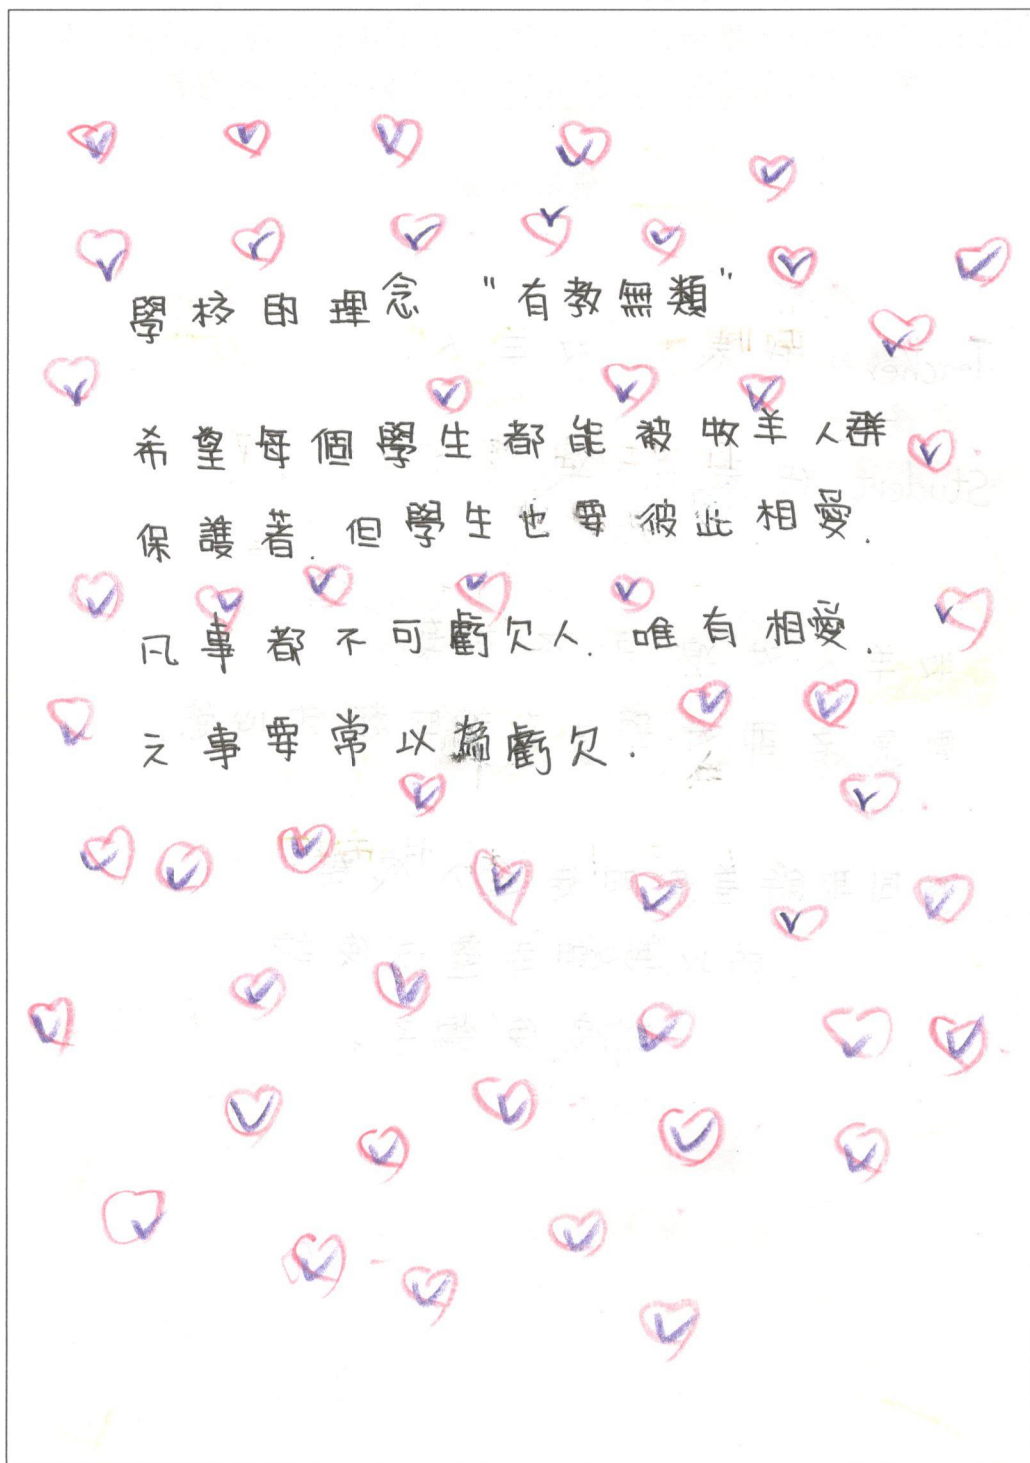 學校的理念 "有教無類"
希望每個學生都能被牧羊人群
保護著.但學生也要彼此相愛.
凡事都不可虧欠人.唯有相愛.
之事要常以為虧欠.